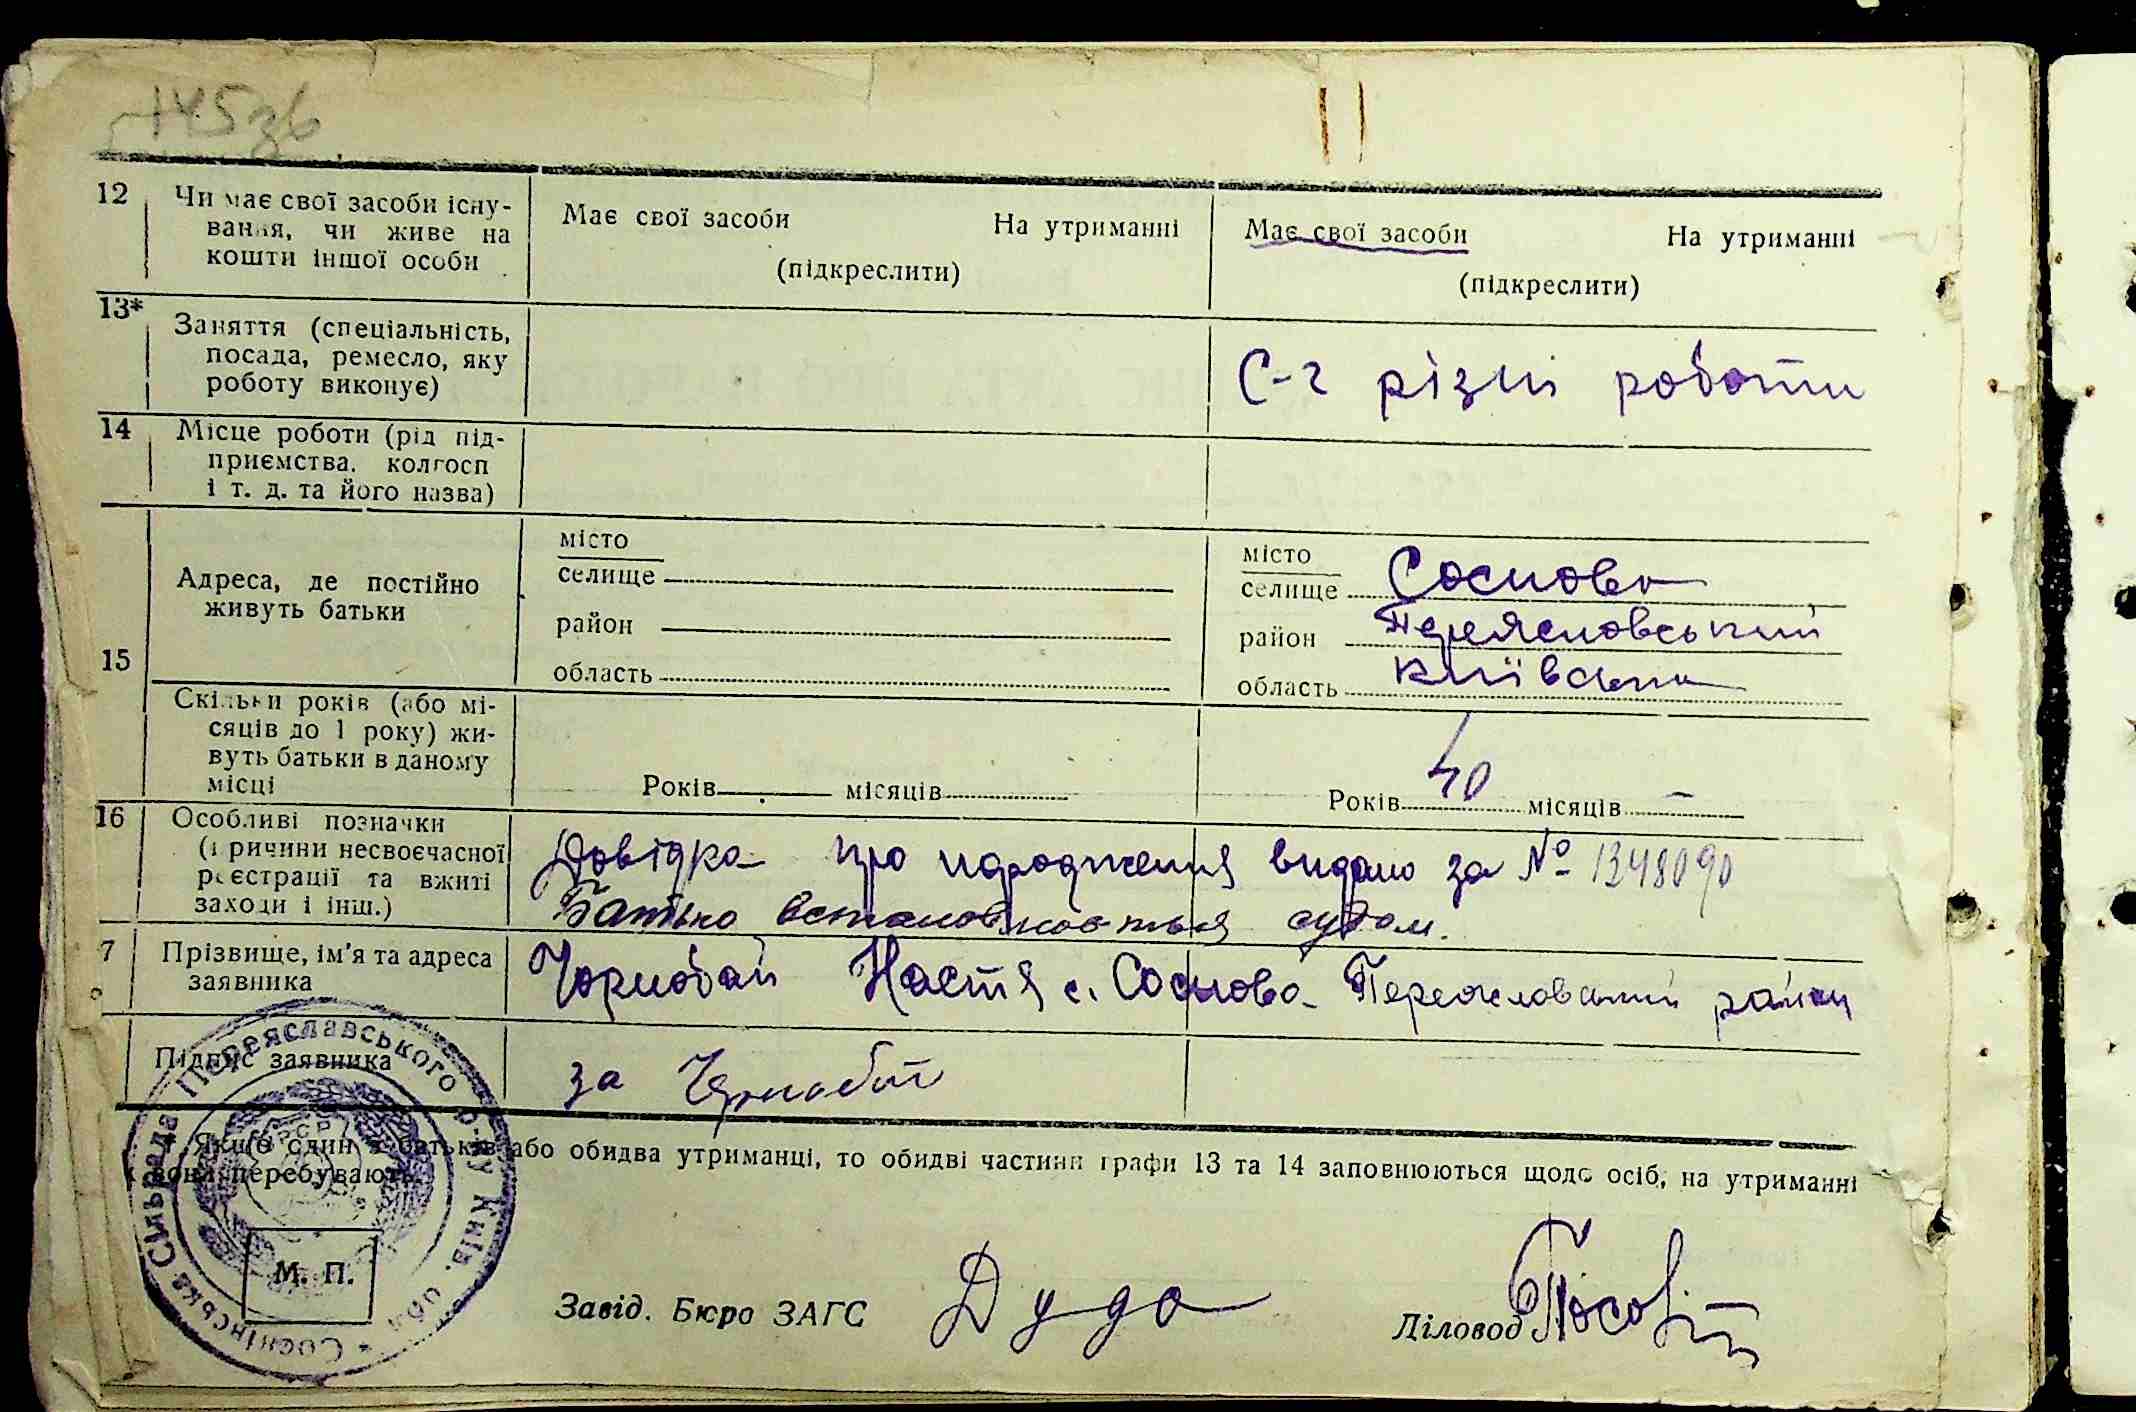 145зв
12 Чи має свої засоби існу-
вання, чи живе на
кошти іншої особи
Має свої засоби На утриманні
(підкреслити)
Має свої засоби На утриманні
(підкреслити)
13* Заняття (спеціальність,
посада, ремесло, яку
роботу виконує)
С-г різні роботи
14 Місце роботи (рід під-
приємства, колгосп
і т. д. та його назва)
15
Адреса, де постійно
живуть батьки
місто
селище
район
область
місто
селище Соснова
район Переяславський
область Київська
Скільки років (або мі-
сяців до 1 року) жи-
вуть батьки в даному
місці
Років місяців
Років 40 місяців —
16 Особливі позначки
(причини несвоєчасної
реєстрації та вжиті
заходи і інш.)
Довідка про народження видано за № 1348090
Батько встановлюється судом.
7 Прізвище, ім'я та адреса
заявника
Чорнобай Настя с. Соснова Переяславський район
Підпис заявника
за Чорнобай
* Якщо один з батьків або обидва утриманці, то обидві частини графи 13 та 14 заповнюються щодо осіб, на утриманні
яких вони перебувають.
Соснінська Сільрада Переяславського р-ну Київ. обл.
УРСР
М. П.
Завід. Бюро ЗАГС Дуда
Діловод